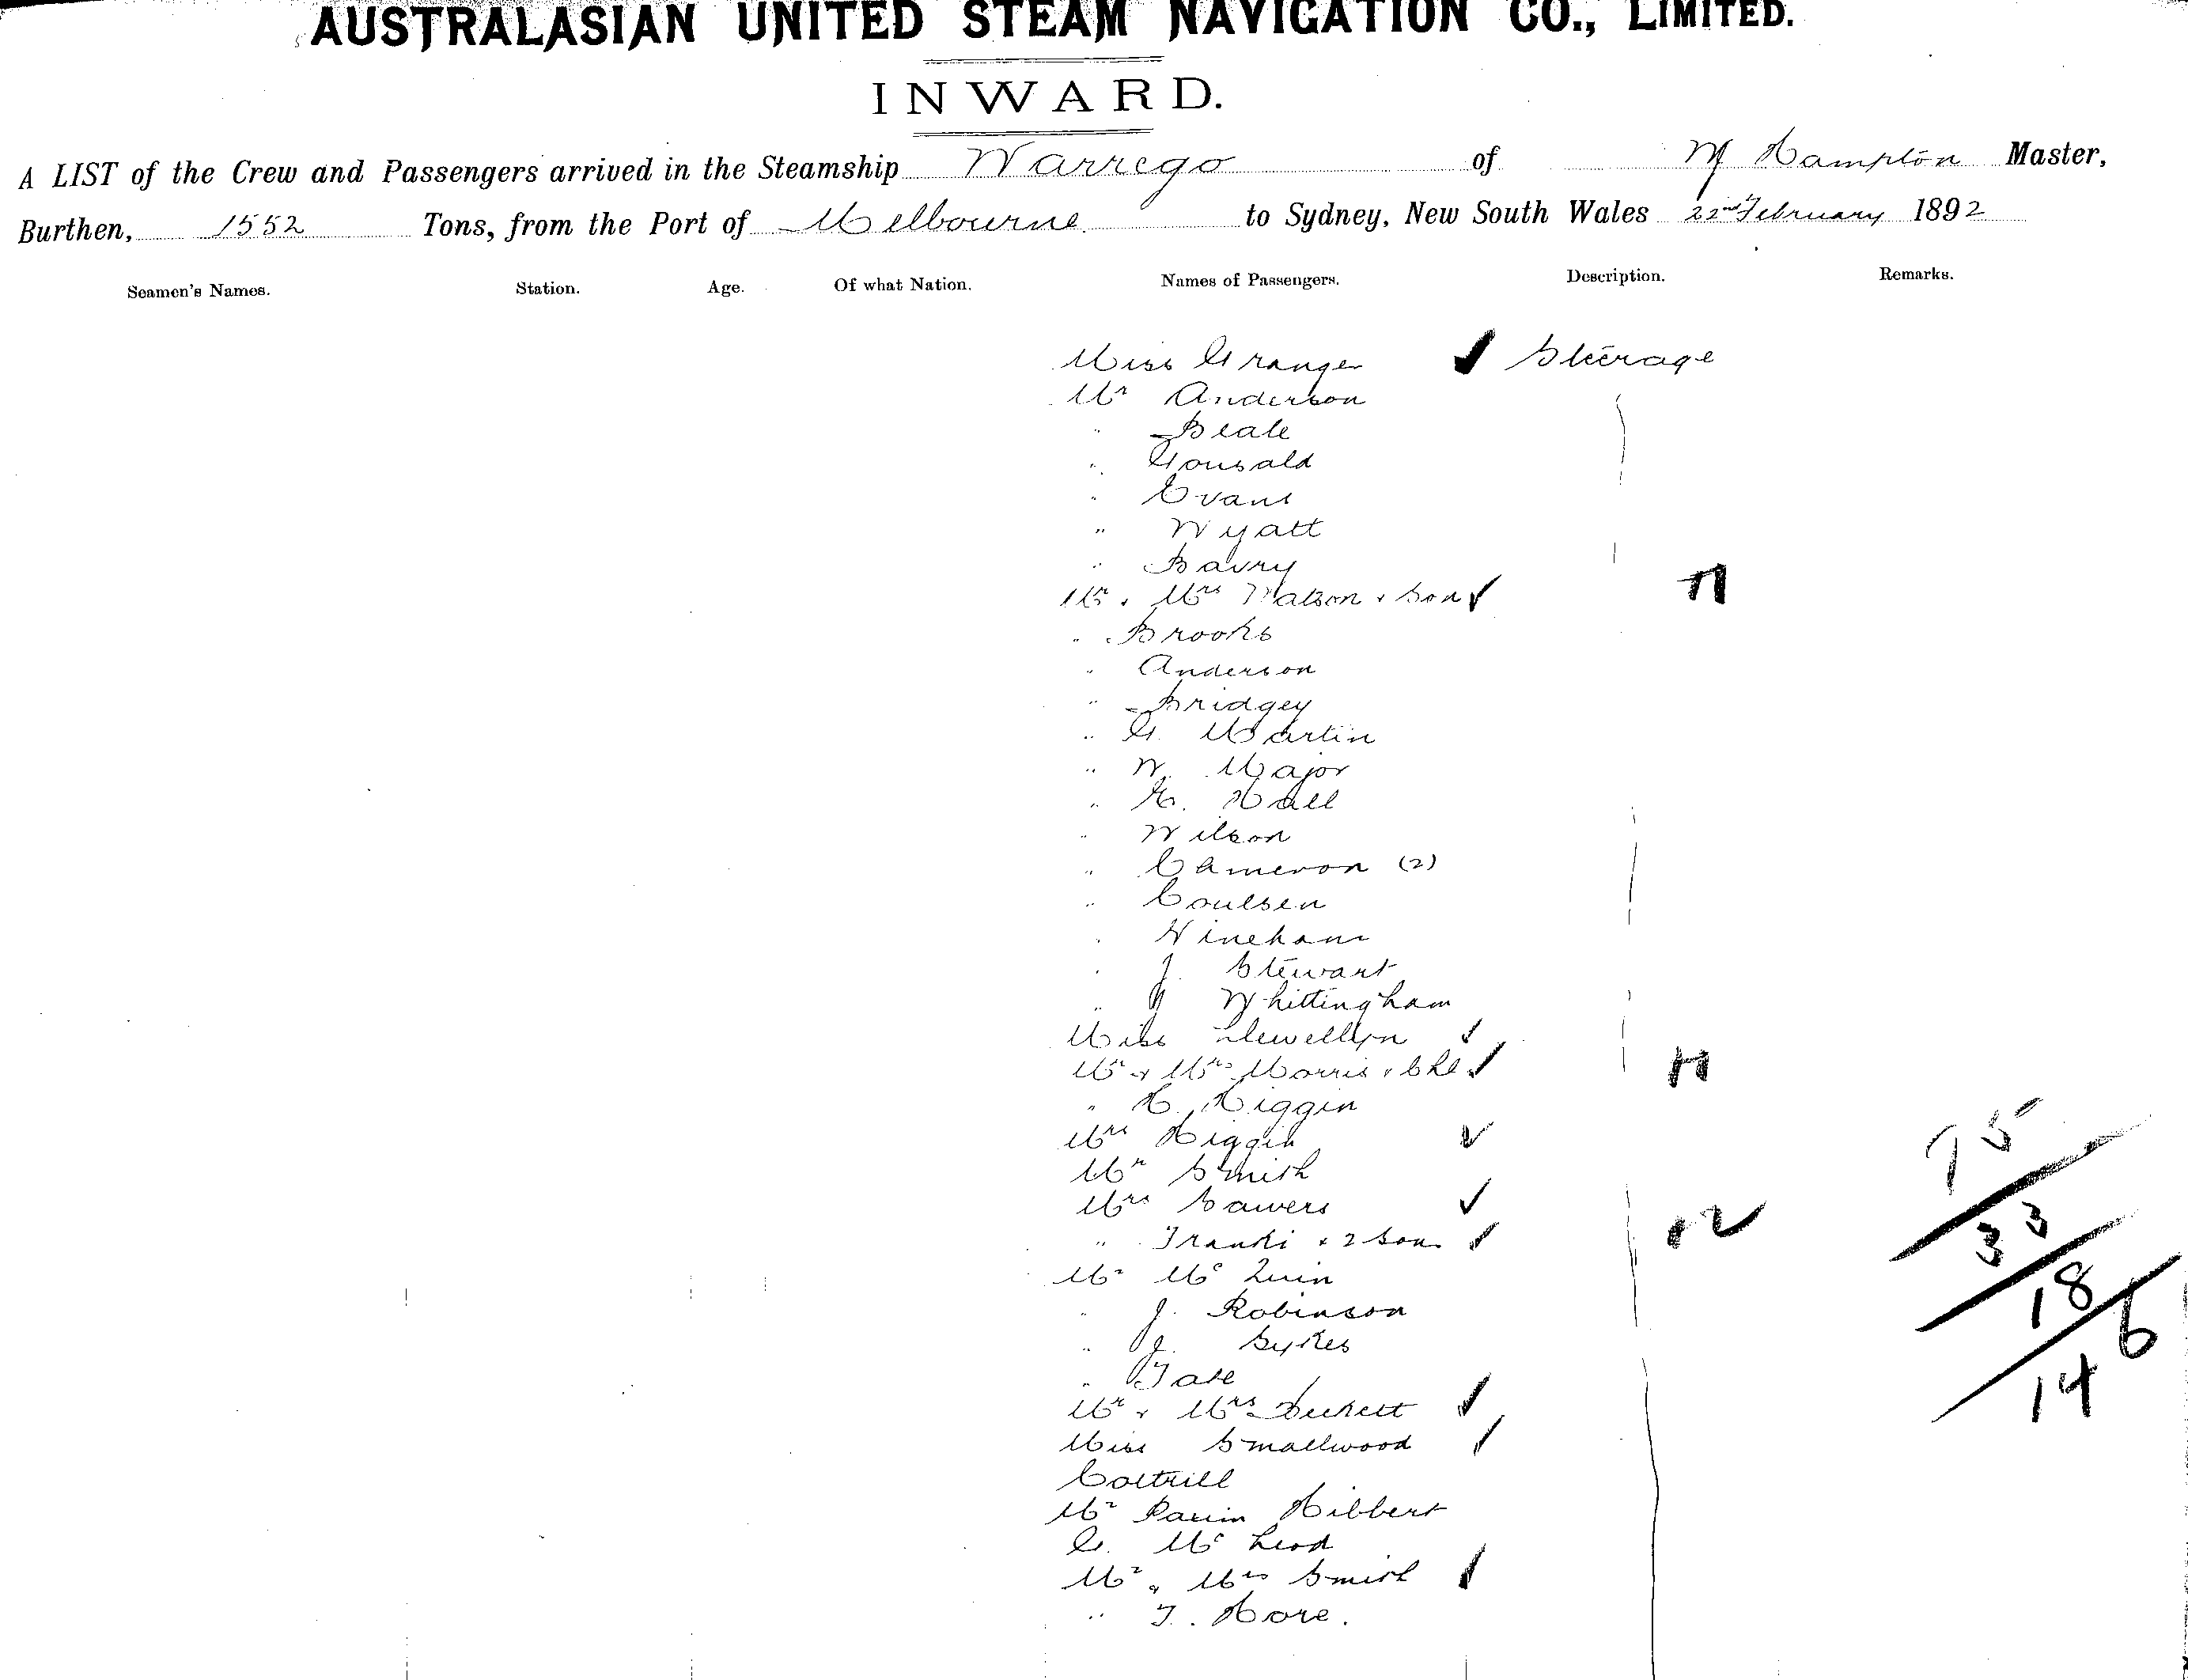 AUSTRALASIAN UNITED STEAM NAVIGATION CO., LIMITED.
INWARD.
A LIST of the Crew and Passengers arrived in the Steamship Warrego of M Hampton Master,
Burthen, 1552 Tons, from the Port of Melbourne to Sydney, New South Wales 22nd February 1892
Seamen's Names. Station. Age. Of what Nation. Names of Passengers. Description. Remarks.
Miss Granger ✓ Steerage
Mr Anderson
" Beale
" Gonsald
" Evans
" Wyatt
" Bavry
Mr & Mrs Watson & Son ✓
" Brooks
" Anderson
" Bridgey
" G. Martin
" W. Major
" G. Hall
" Wilson
" Cameron (2)
" Coulsen
" Hineham
" J. Stewart
" J Whittingham
Miss Llewellyn ✓
Mr & Mrs Morris & Chd ✓
" H. Higgin
Mrs Higgin ✓
Mr Smith
Mrs Sawers ✓
" Franki & 2 Sons ✓
12
Mr Mc Quin
" J. Robinson
" J. Sykes
" Tate
Mr & Mrs Beckett ✓
Miss Smallwood ✓
Cottrill
Mr Hibbert
G. Mc Leod
Mr & Mrs Smith ✓
" T. Hore.
75
33
18
6
14